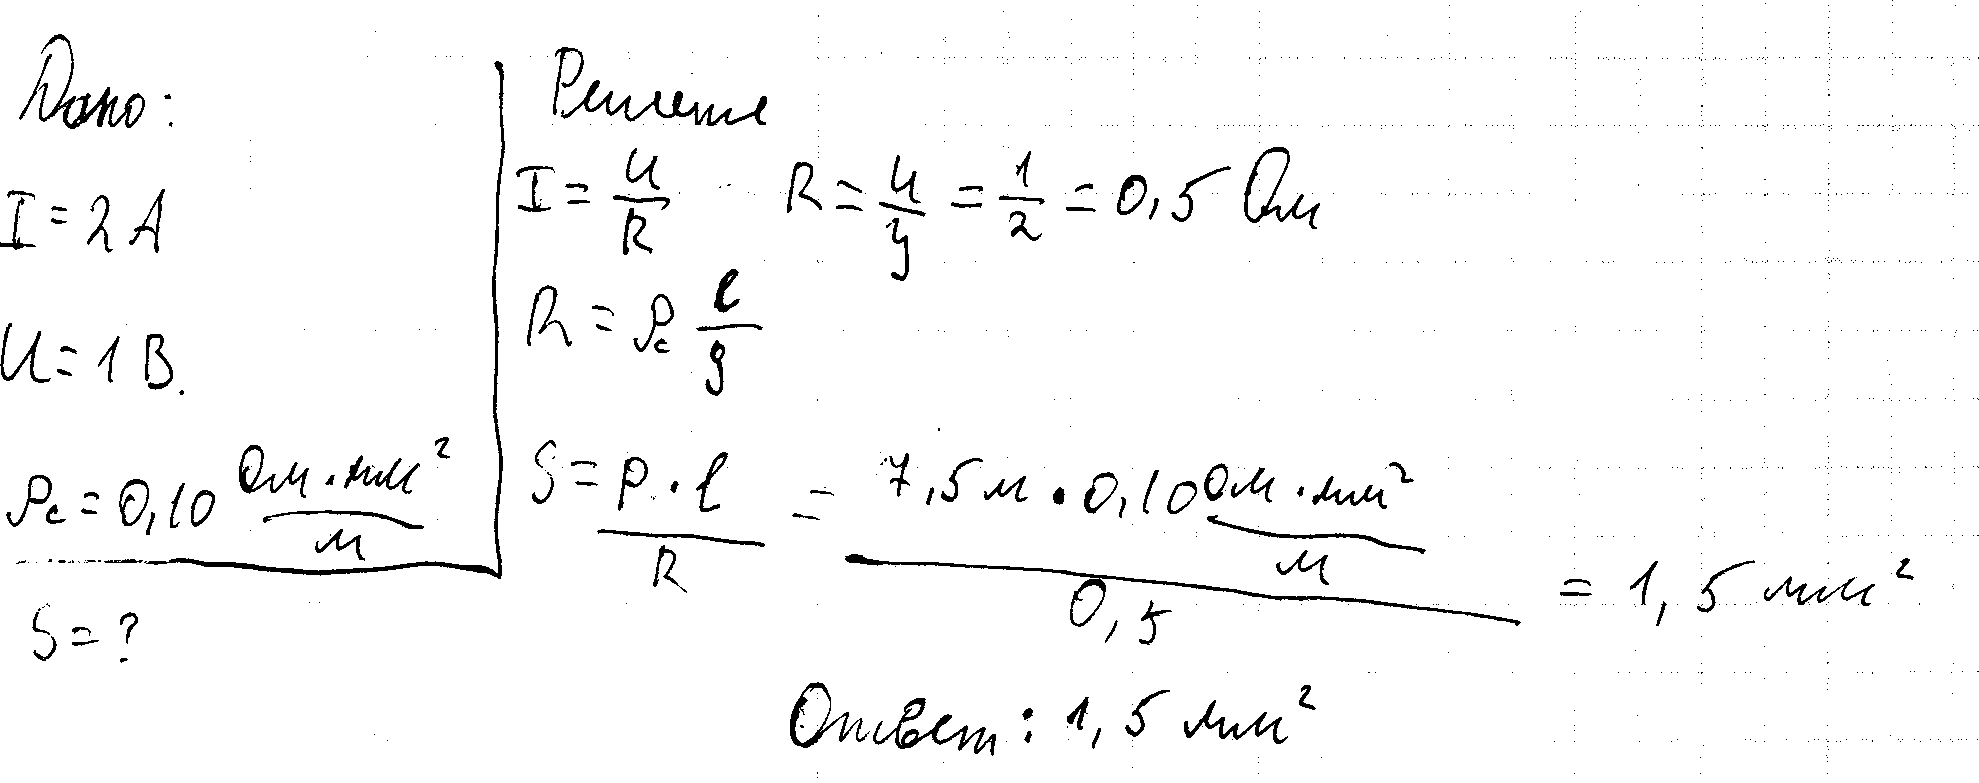 Дано:
I = 2 А
U = 1 В.
ρс = 0,10 Ом·мм²/м
S = ?
Решение
I = U/R R = U/I = 1/2 = 0,5 Ом
R = ρс l/S
S = ρ·l/R = 7,5 м · 0,10 Ом·мм²/м / 0,5 = 1,5 мм²
Ответ: 1,5 мм²